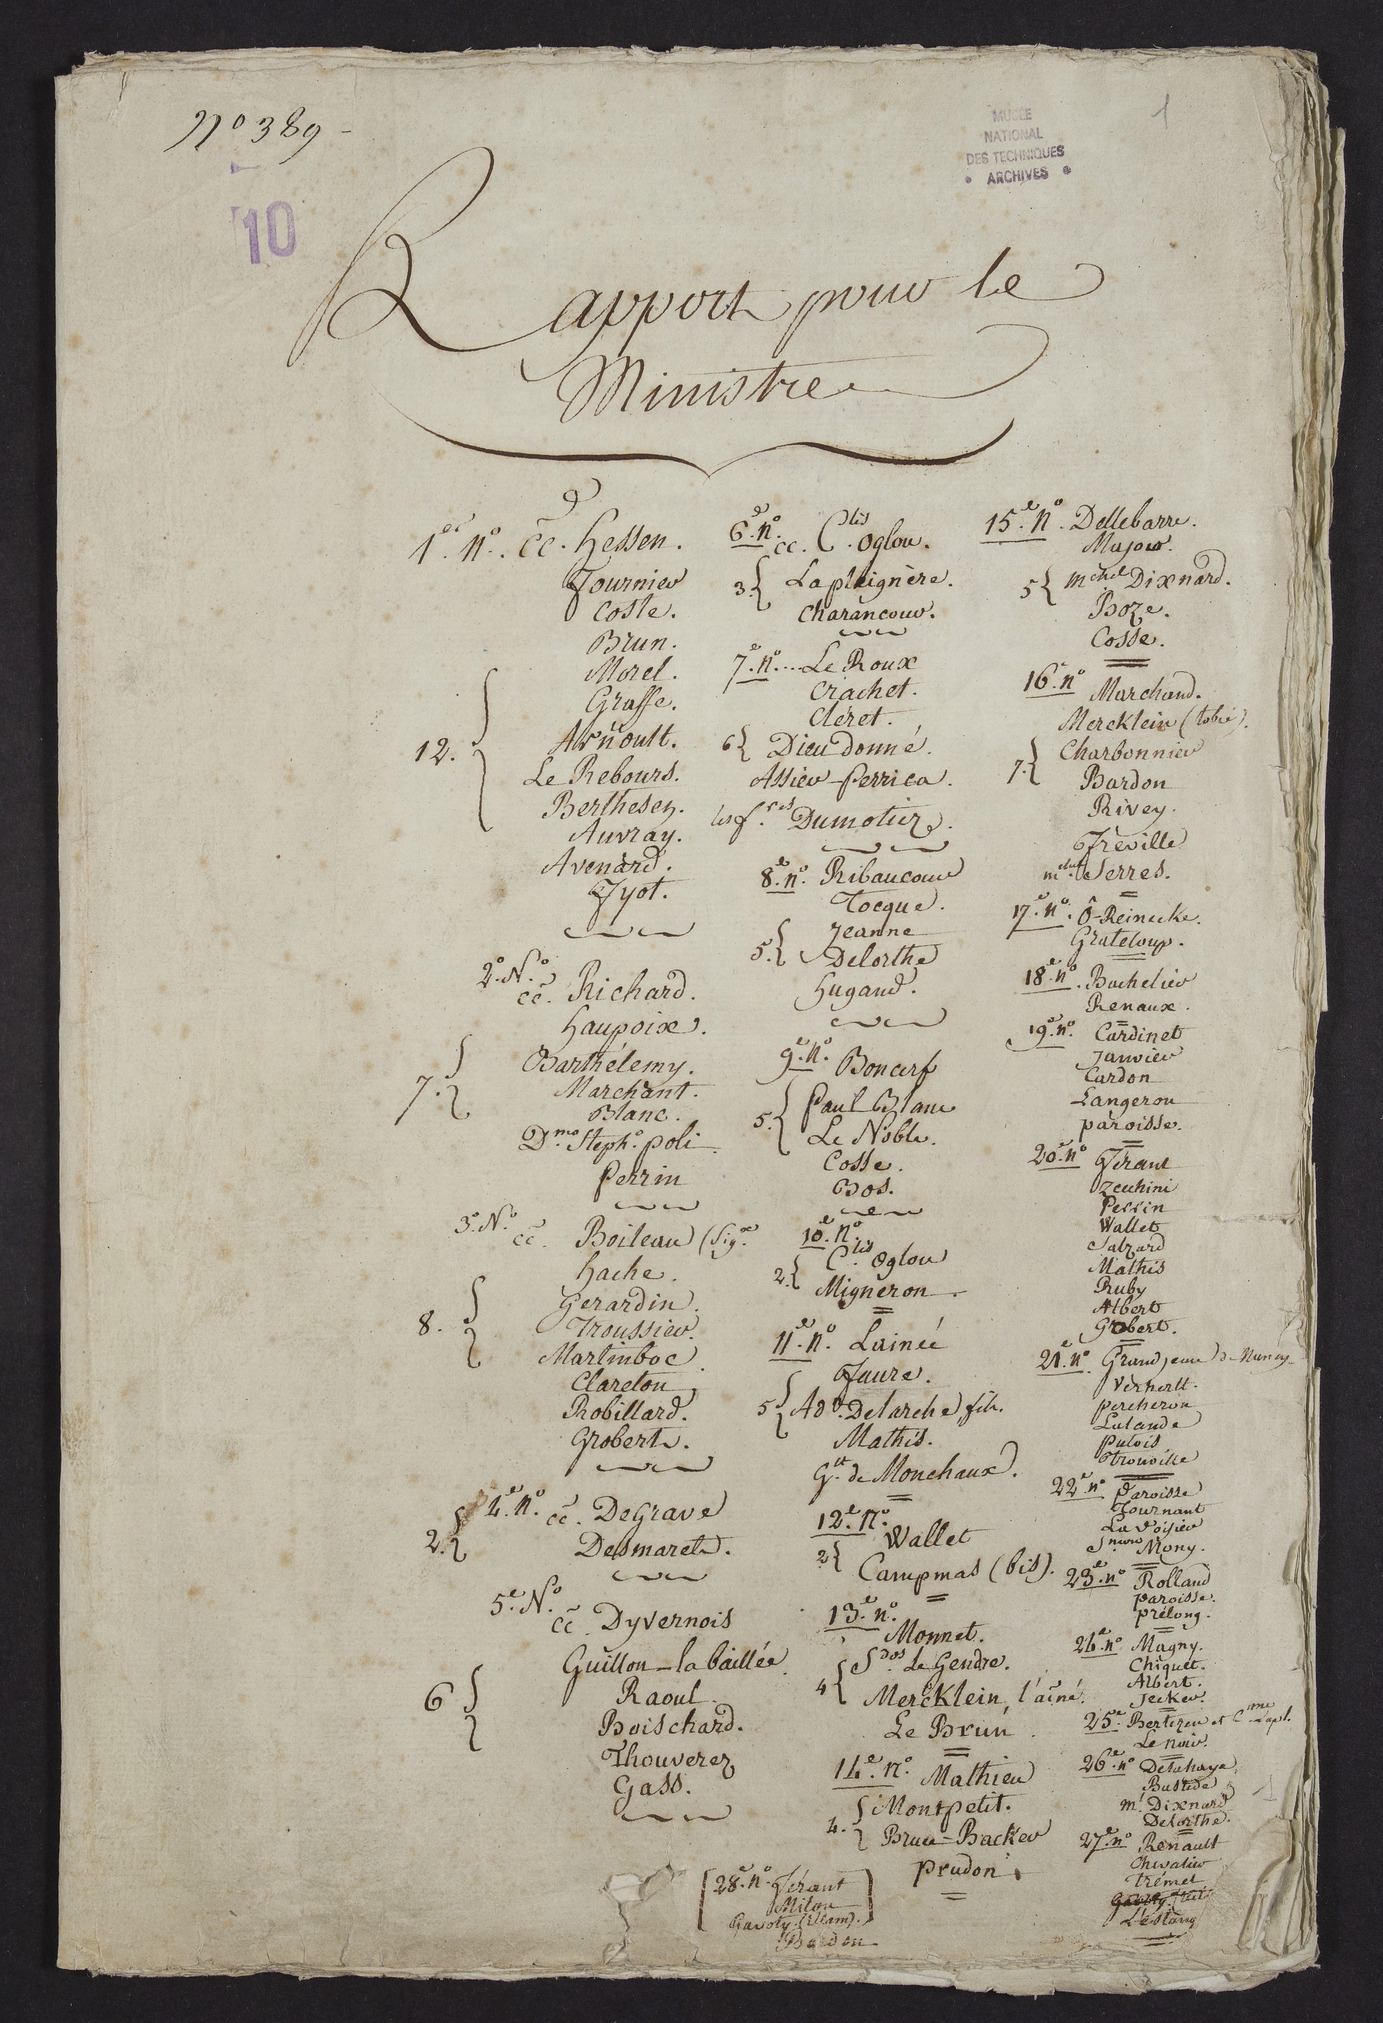 N.º 389
10
MUSÉE
NATIONAL
DES TECHNIQUES
ARCHIVES
1
Rapport pour le
Ministre
1.er N.º CC. Hessen.
Fournier
Coste.
Brun.
Morel.
Graffe.
12. Arnoult.
Le Rebours.
Berthesen.
Auvray.
Avenard.
Fyot.
2.e N.º
CC. Richard.
Haupoix.
Barthélemy.
7. Marchant.
Blanc.
D.mo Steph.º poli.
Perrin
3.e N.º
CC. Boileau
Hache.
Gerardin.
8. Troussier.
Martinboc.
Clareton
Robillard.
Grobert.
4.e N.º CC. Degrave
2. Desmaret.
5.e N.º
CC. Dyvernois
Guillon-la baillée
6 Raoul.
Boischard.
Thouverez
Gass.
6.e N.º
CC. C.lis Oglou.
3. Lapleignère.
Charancour.
7.e N.º Le Roux
Crachet.
Cléret.
6 Dieudonné.
Assier-Perrica.
les f.res Dumotiez.
8.e N.º Ribaucour
Tocque.
Jeanne
5. Delorthe
Hugand.
9.e N.º Boncerf
Paul Blanc
5. Le Noble.
Cosse.
Bos.
10.e N.º
C.lis Oglou
2. Migneron.
11.e N.º Lainée
Faure.
5 Ad.º Delarche fils.
Mathis.
G.tt de Monchaux.
12.e N.º
Wallet
2 Campmas (bis).
13.e N.º
Monnet.
S.dos Le Gendre.
4 Mercklein l'aîné.
Le Brun.
14.e N.º Mathieu
Montpetit.
4. Brun-Backer
Prudon.
28.e N.º Férant
Milan
Gavoty
Bardon
15.e N.º Dellebarre.
Major.
5 M.chel Dixnard.
Boze.
Cosse.
16.e N.º Marchand.
Mercklein (tobie).
Charbonnier
7. Bardon
Rivey.
Fréville
Serres.
17.e N.º O-Reinecke.
Grateloup.
18.e N.º Bachelier
Renaux.
19.e N.º Cardinet
Janvier
Cardon
Langeron
paroisse.
20.e N.º Férant
Zecchini
Perrin
Wallet
Salzard
Mathis
Ruby
Albert
Grobert.
21.e N.º Grandjean de Nancy
Vernert.
percheron
Lalande
Palois
Trouville
22.e N.º Paroisse
Tournant
La Voisier
Mony.
23.e N.º Rolland
paroisse.
prélong.
24.e N.º Magny.
Chiquet.
Albert.
Jecker.
25.e
Le noir.
26.e N.º Delahaye
Bastide
M.l Dixnard
Delorthe.
27.e N.º Renault
Chevalier
Trémel
L'estang